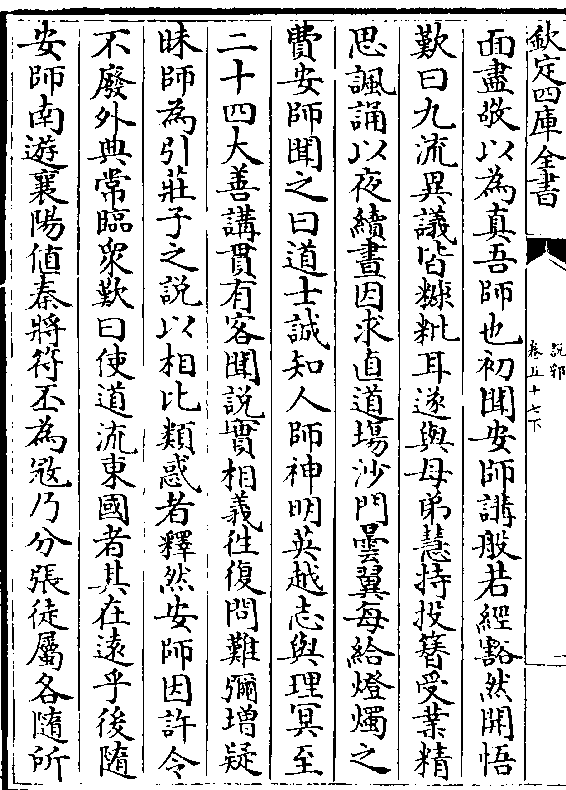 欽定四庫全書
說郛
卷五十七下
一
面盡敬以為真吾師也初聞安師講般若經豁然開悟
歎曰九流異議皆糠粃耳遂與母弟慧持投簪受業精
思諷誦以夜續晝因求直道場沙門曇翼每給燈燭之
費安師聞之曰道士誠知人師神明英越志與理冥至
二十四大善講貫有客聞說實相義往復問難彌增疑
昧師為引莊子之說以相比類惑者釋然安師因許令
不廢外典常臨衆歎曰使道流東國者其在遠乎後隨
安師南遊襄陽值秦將符丕為寇乃分張徒屬各隨所